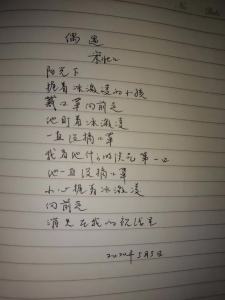 偶遇
阳光下
握着冰激凌的小孩
戴口罩向前走
他盯着冰激凌
一直没摘口罩
我看他什么时候吃第一口
他一直没摘口罩
小心握着冰激凌
向前走
消失在我的视线里
2020年5月5日